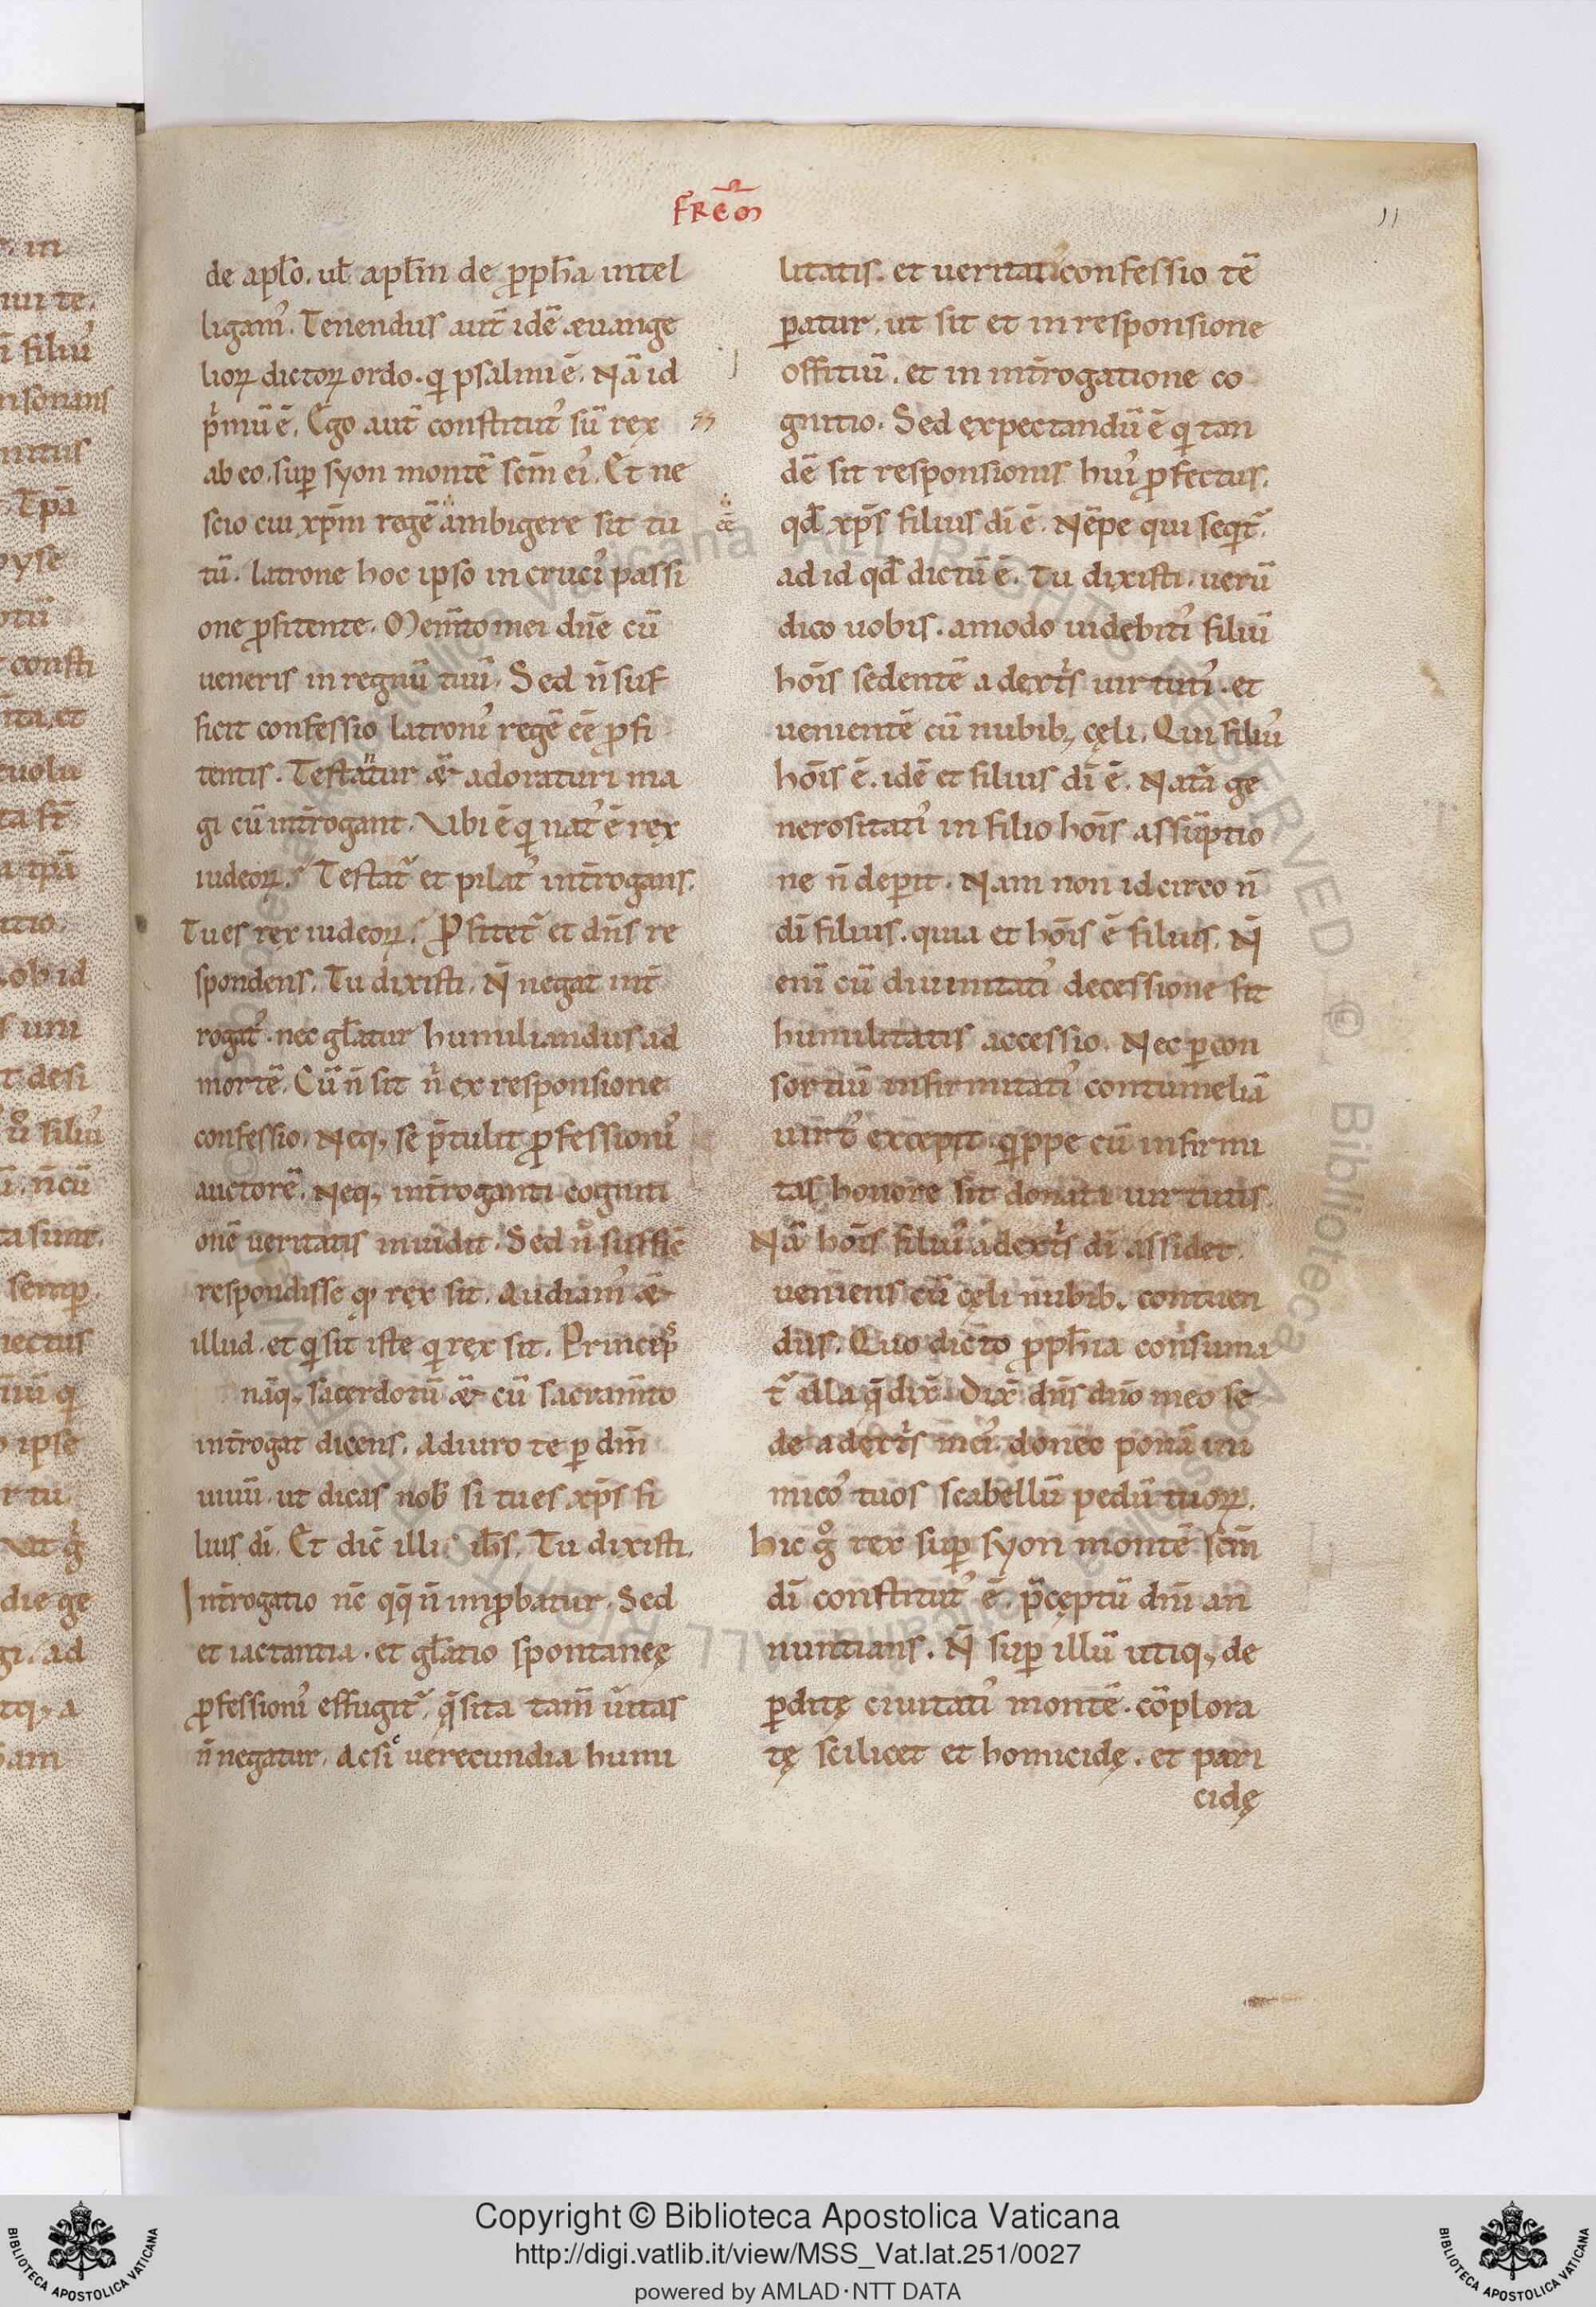 FREM̄
11
de apl̄o. ul̄ apl̄m de ꝓph̄a intel
ligam᾽. Tenendus aut̄ idē æuange
lioꝝ dictoꝝ ordo. q psalmi ē. Nā id
pmū ē. Ego aut̄ constitut᾽ sū rex
ab eo. suꝑ syon montē sc̄m ei᾽. Et ne
scio cui xp̄m regē ambigere sit tu
tū. latrone hoc ipso in cruci᾽ passi
one ꝓfitente. Mem̄to mei dn̄e cū
ueneris in regnū tuū. Sed n̄ suf
ficit confessio latroni᾽ regē eē ꝓfi
tentis. Testātur & adoraturi ma
gi cū int̄rogant. Vbi ē q nat᾽ ē rex
iudeoꝝ. Testat̄ et pilat᾽ int̄rogans.
Tu es rex iudeoꝝ. Ꝓfitet̄ et dn̄s re
spondens. Tu dixisti. N̄ negat int̄
rogat᾽. nec gl̄atur humiliandus ad
mortē. Cū n̄ sit n ex responsione
confessio. Neq; se p̄tulit ꝓfessioni᾽
auctorē. Neq; int̄roganti cogniti
onē ueritatis inuidit. Sed n̄ suffic̄
respondisse qꝫ rex sit. Audiam᾽ &
illud. et q sit iste q rex sit. Princeps
nāq; sacerdotū & cū sacram̄to
int̄rogat dicens. Adiuro te ꝑ dm̄
uiuū. ut dicas nob̄ si tu es xp̄s fi
lius dī. Et dic̄ illi ih̄s. Tu dixisti.
Int̄rogatio nc̄ qq̄ n̄ imꝓbatur. Sed
et iactantia. et gl̄atio spontaneę
ꝓfessioni᾽ effugit̄. q̄sita tam̄ ūitas
n̄ negatur. Ac si uerecundia humi
litatis. et ueritati᾽ confessio tē
ꝑatur. ut sit et in responsione
offitiū. et in int̄rogatione co
gnitio. Sed expectandū ē q tan
dē sit responsionis hui᾽ ꝓfectus.
qd̄ xp̄s filius dī ē. Nēpe qui seqt̄.
ad id qd̄ dictū ē. Tu dixisti. uerū
dico uobis. amodo uidebiti᾽ filiū
hōis sedentē a dextis uirtuti᾽. et
uenientē cū nubib; cęli. Qui filiu᾽
hōis ē. idē et filius dī ē. Nat̄a ge
nerositati᾽ in filio hōis assūptio
ne n̄ deꝑit. Nam non idcirco n̄
dī filius. quia et hōis ē filius. N̄
enī cū diuinitati᾽ decessione fit
humilitatis accessio. Nec ꝑ con
sortiū infirmitati᾽ contumeliā
uirt᾽ excepit. qppe cū infirmi
tas honore sit donata uirtutis.
Nā hōis filiu᾽ a dextis dī assidet.
ueniens cū cęli nubib; contuen
dus. Quo dicto ꝓph̄ia consuma
t̄ illa q̄ dix̄. Dix̄ dn̄s dn̄o meo se
de a dextis mei᾽. donec ponā ini
mico᾽ tuos scabellū pedū tuoꝝ.
Hic g rex suꝑ syon montē sc̄m
dī constitut᾽ ē. p̄ceptū dn̄i an
nuntians. N̄ suꝑ illū utiq; de
ꝑditę ciuitati᾽ montē. cōplora
tę scilicet et homicidę. et pari
cidę
Copyright © Biblioteca Apostolica Vaticana
http://digi.vatlib.it/view/MSS_Vat.lat.251/0027
powered by AMLAD·NTT DATA